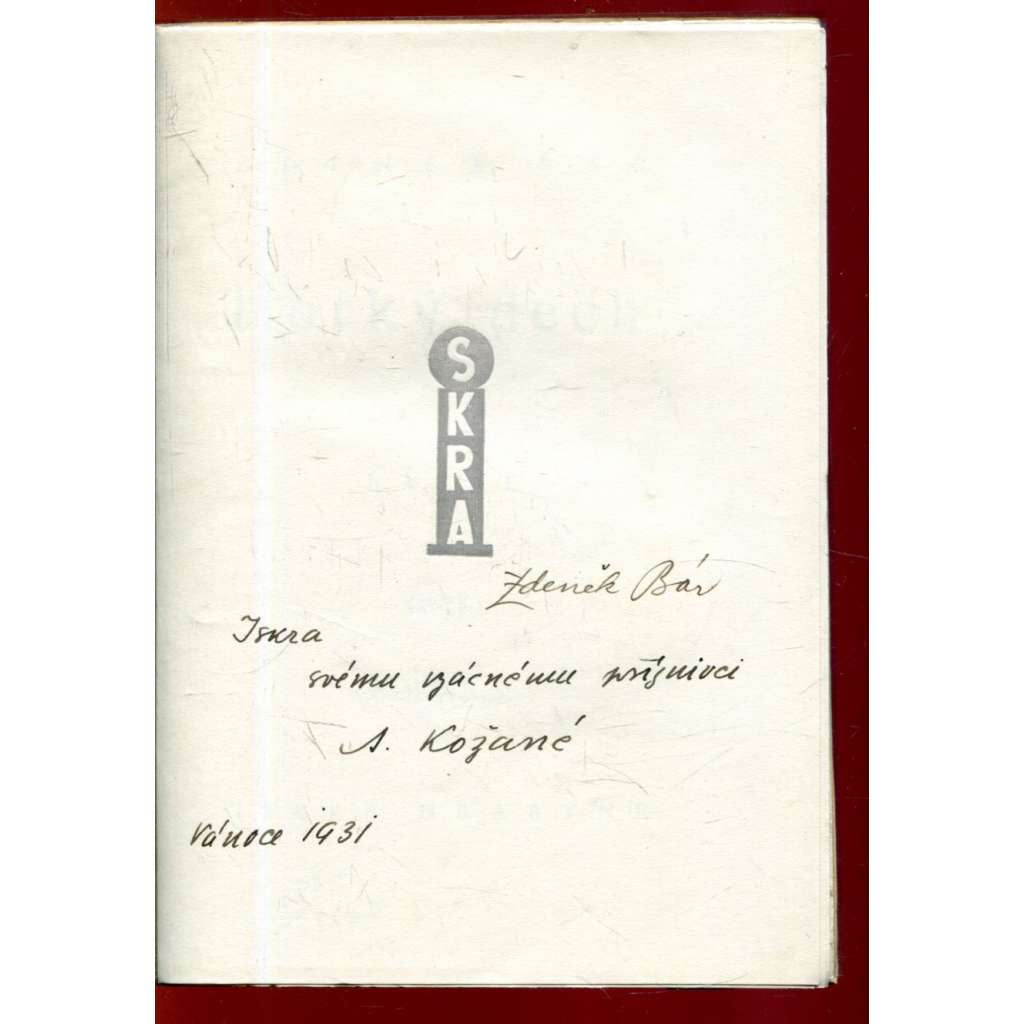 SKRA
Zdeněk Bár
Iskra
svému vzácnému příznivci
A. Kožané
Vánoce 1931